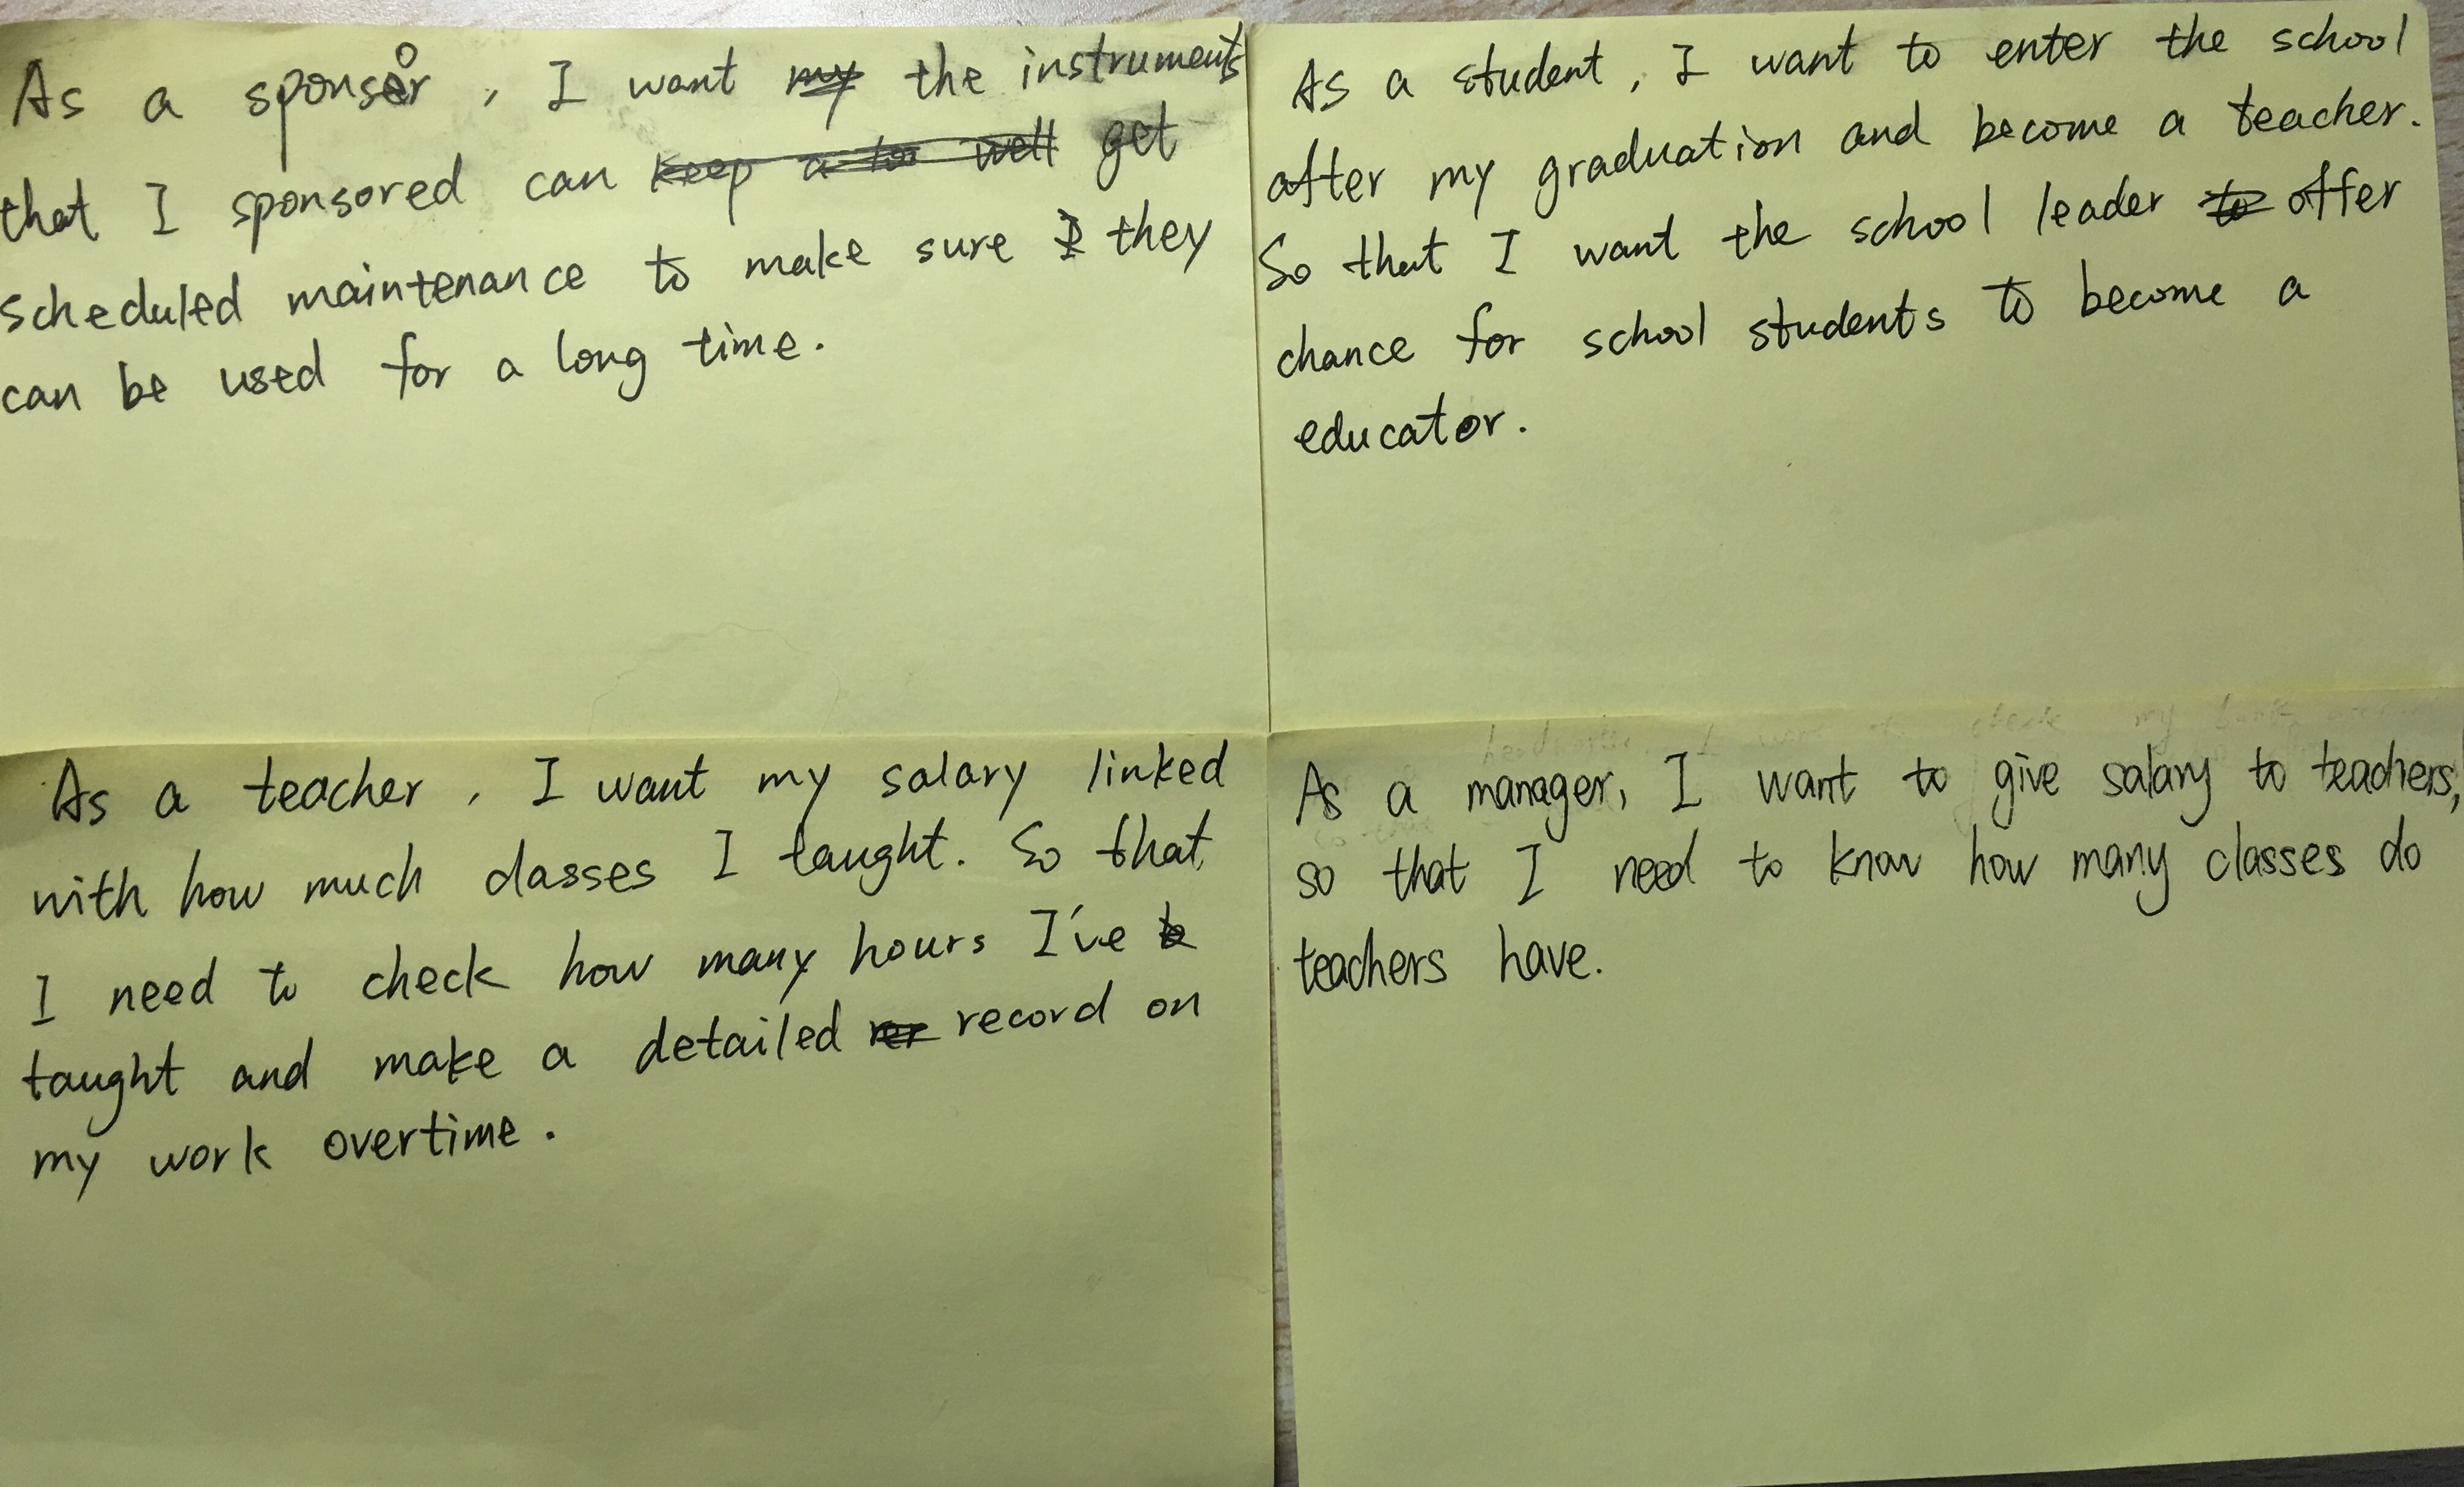 As a sponsor, I want the instruments
that I sponsored can get
scheduled maintenance to make sure they
can be used for a long time.
As a student, I want to enter the school
after my graduation and become a teacher.
So that I want the school leader offer
chance for school students to become a
educator.
As a teacher, I want my salary linked
with how much classes I taught. So that
I need to check how many hours I've
taught and make a detailed record on
my work overtime.
check my bank
As a manager, I want to give salary to teachers,
so that I need to know how many classes do
teachers have.